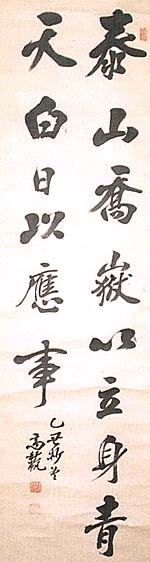 泰山喬嶽以立身青
天白日以應事
乙丑